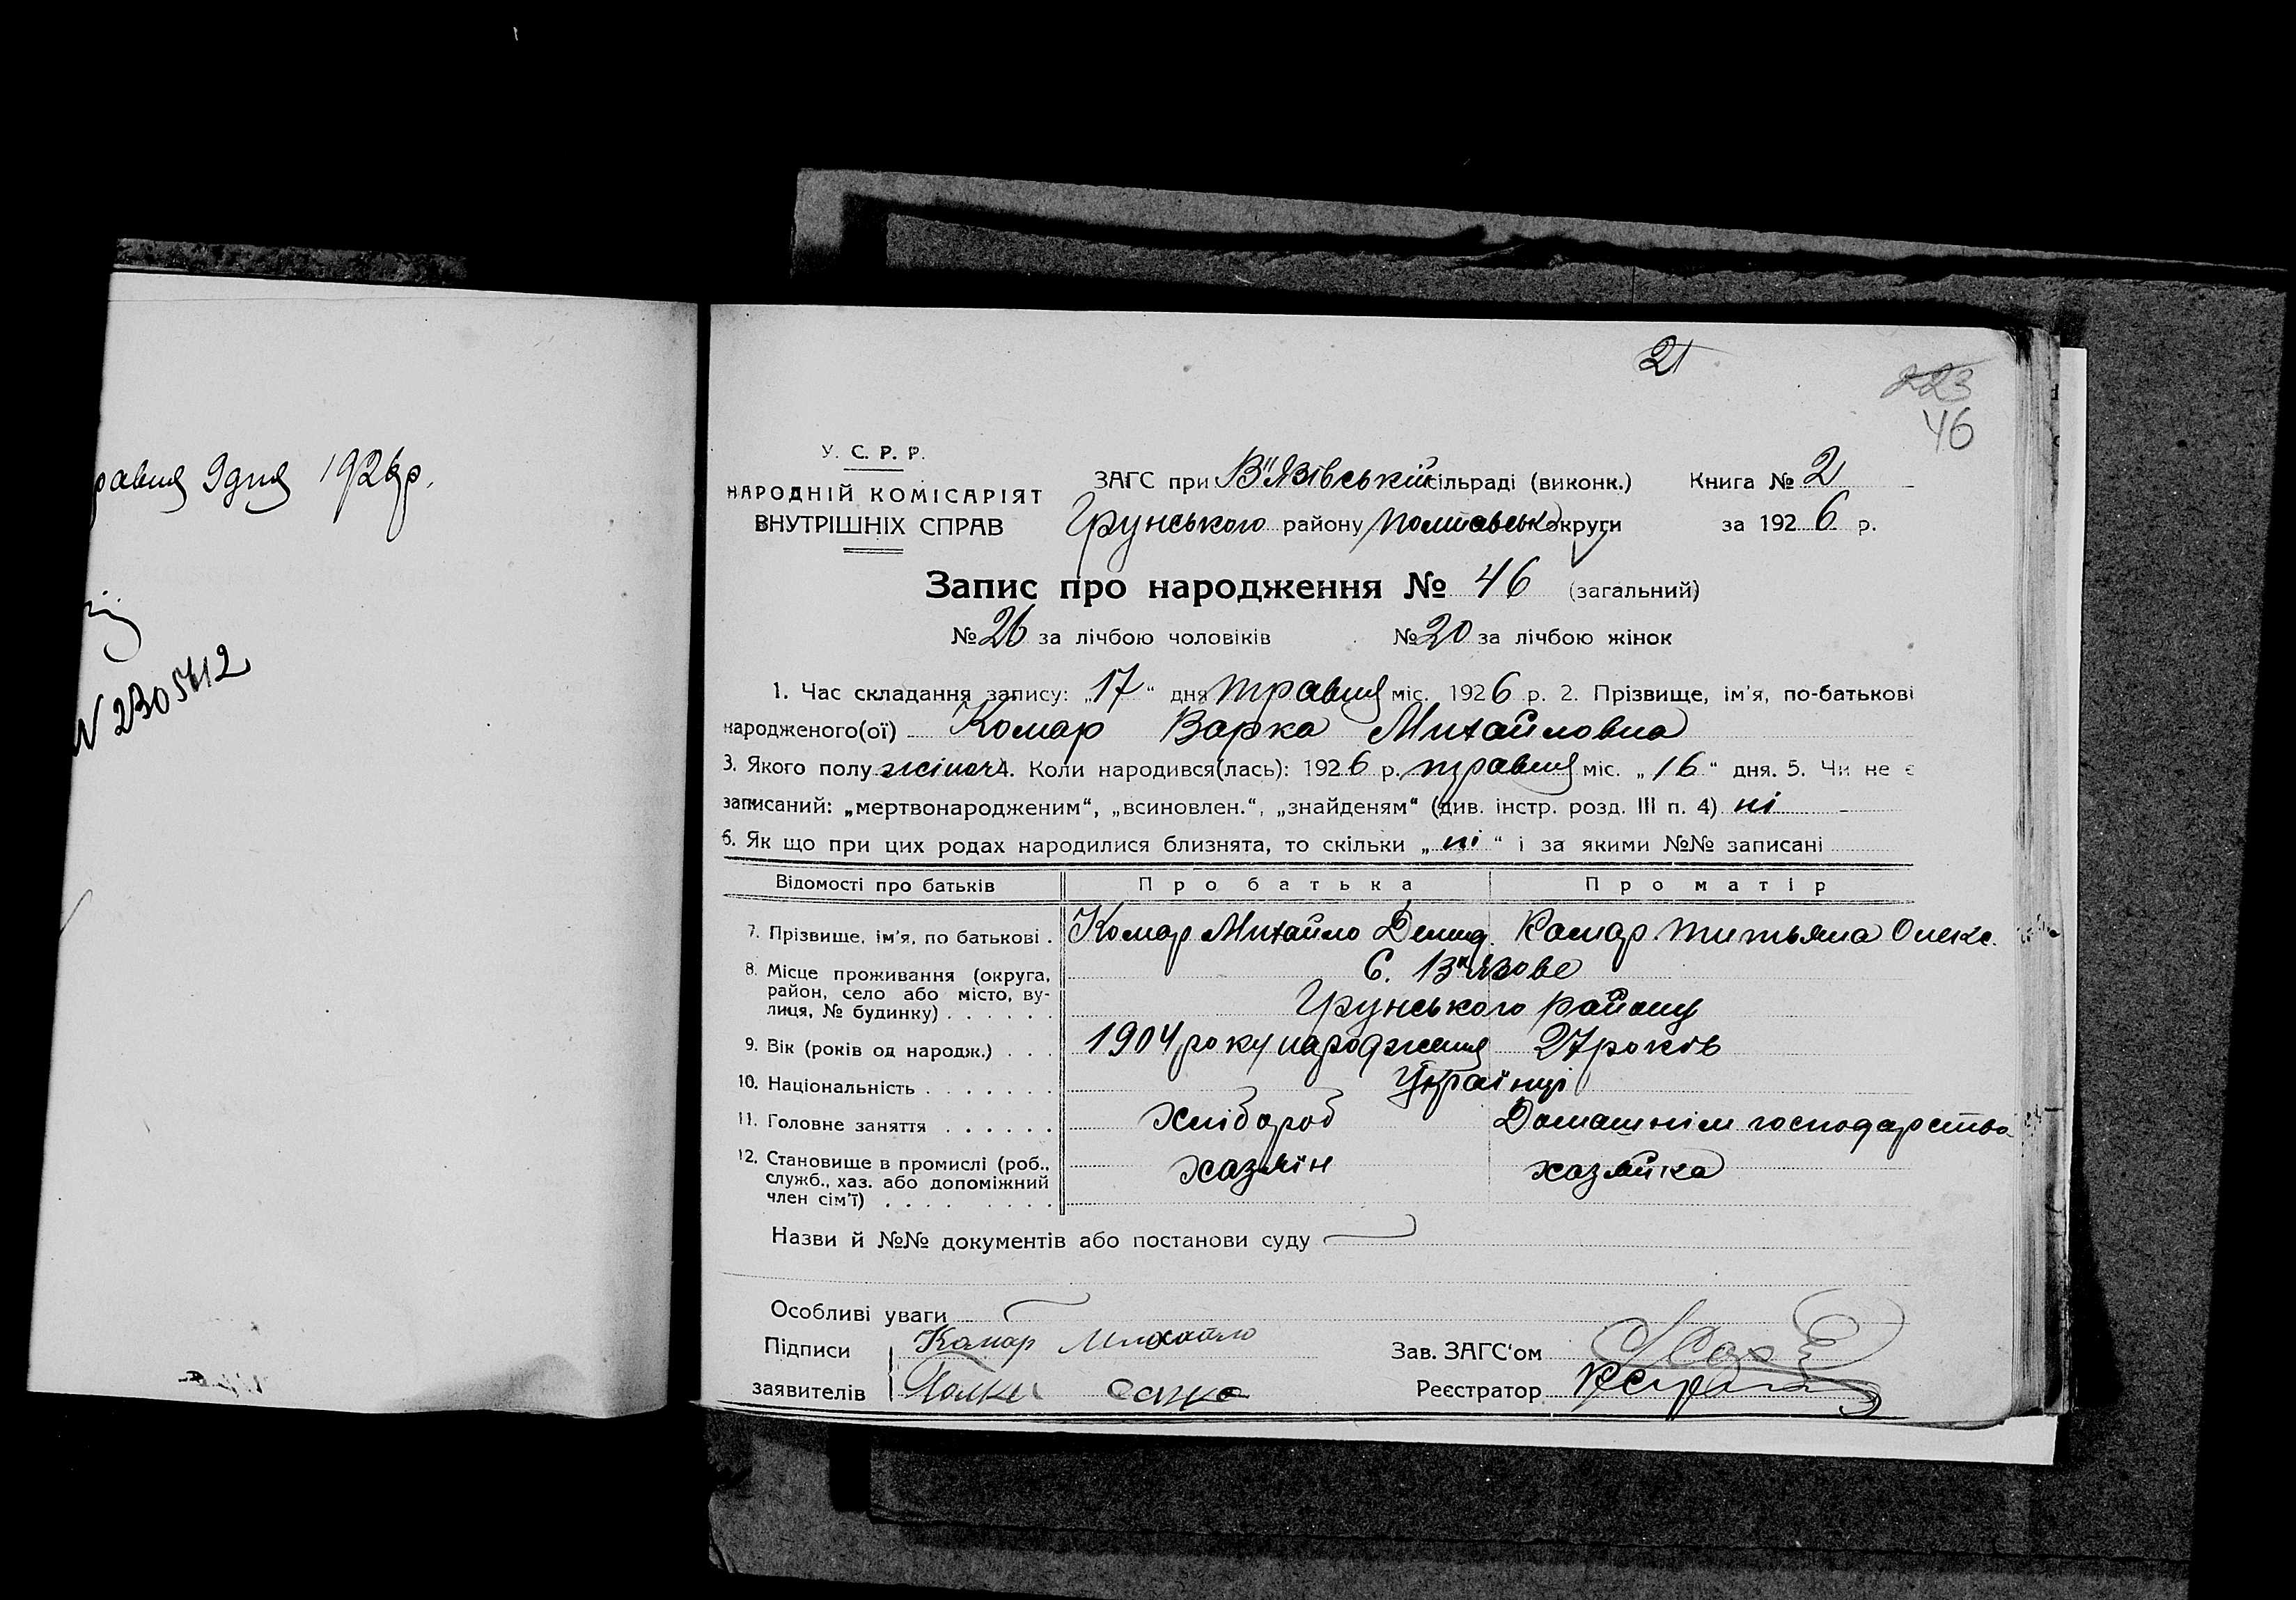 равня 9 дня 1926 р.
№ 2305412
21
223
46
У. С. Р. Р.
НАРОДНІЙ КОМІСАРІЯТ
ВНУТРІШНІХ СПРАВ
ЗАГС при В"язівській сільраді (виконк.) Книга № 2
Грунського району Полтавськ округи за 1926 р.
Запис про народження № 46 (загальний)
№ 26 за лічбою чоловіків № 20 за лічбою жінок
1. Час складання запису: „17“ дня травня міс. 1926 р. 2. Прізвище, ім'я, по-батькові
народженого(ої) Комар Варка Михайловна
3. Якого полу жіноч 4. Коли народився(лась): 1926 р. травня міс. „16“ дня. 5. Чи не є
записаний: „мертвонародженим“, „всиновлен.“, „знайденям“ (див. інстр. розд. III п. 4) ні
6. Як що при цих родах народилися близнята, то скільки „ні“ і за якими №№ записані
Відомості про батьків Про батька Про матір
7. Прізвище, ім'я, по батькові . Комар Михайло Демид. Комар Титьяна Олекс.
8. Місце проживання (округа, район, село або місто, вулиця, № будинку) . . . . . . С. В"язове
Грунського району
9. Вік (років од народж.) . . . 1904 року народження 27 років
10. Національність . . . . . . . Українці
11. Головне заняття . . . . . . Хлібороб Домашнім господарства
12. Становище в промислі (роб., служб., хаз. або допоміжний член сім'ї) . . . . . . . . хазяїн хазяйка
Назви й №№ документів або постанови суду
Особливі уваги
Підписи Комар Михайло
Зав. ЗАГС'ом
заявителів
Реєстратор